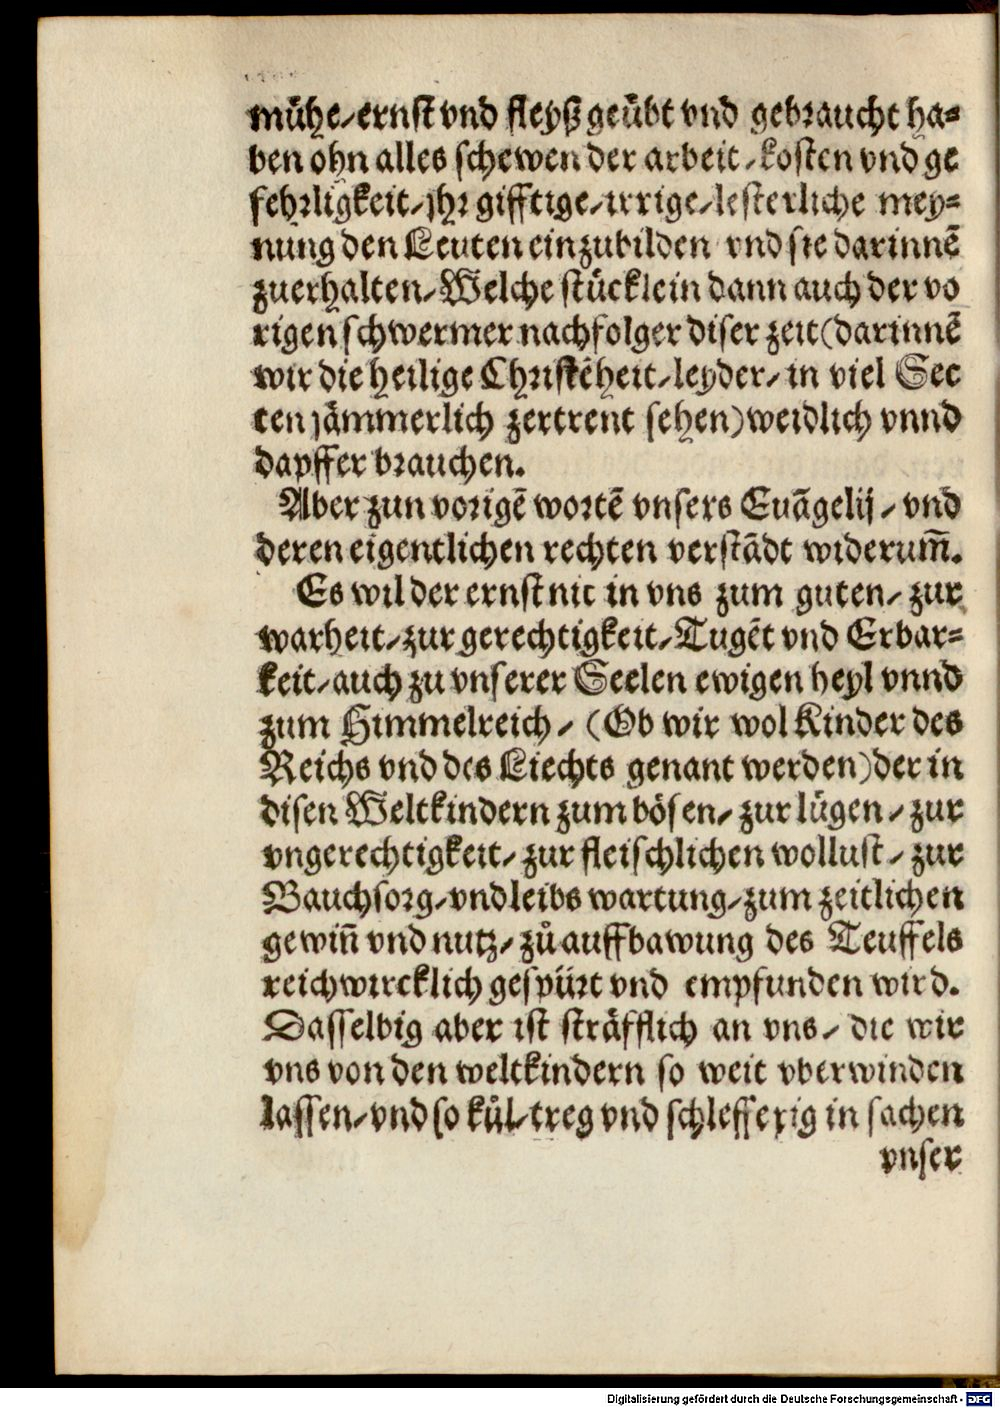 mühe/ernst vnd fleyß geübt vnd gebraucht ha⸗
ben ohn alles schewen der arbeit/kosten vnd ge
fehrligkeit/jhr gifftige/irrige/lesterliche mey⸗
nung den Leuten einzubilden vnd sie darinnẽ
zuerhalten/Welche stücklein dann auch der vo
rigen schwermer nachfolger diser zeit (darinnẽ
wir die heilige Christẽheit/leyder/in viel Sec
ten jämmerlich zertrent sehen) weidlich vnnd
dapffer brauchen.
Aber zun vorigẽ wortẽ vnsers Euãgelij/vnd
deren eigentlichen rechten verstãdt widerum̃.
Es wil der ernst nit in vns zum guten/zur
warheit/zur gerechtigkeit/Tugẽt vnd Erbar⸗
keit/auch zu vnserer Seelen ewigen heyl vnnd
zum Himmelreich/(Ob wir wol Kinder des
Reichs vnd des Liechts genant werden) der in
disen Weltkindern zum bösen/zur lügen/zur
vngerechtigkeit/zur fleischlichen wollust/zur
Bauchsorg/vnd leibs wartung/zum zeitlichen
gewiñ vnd nutz/zů auffbawung des Teuffels
reich wircklich gespürt vnd empfunden wird.
Dasselbig aber ist sträfflich an vns/die wir
vns von den weltkindern so weit vberwinden
lassen/vnd so kül/treg vnd schlefferig in sachen
vnser
Digitalisierung gefördert durch die Deutsche Forschungsgemeinschaft - DFG